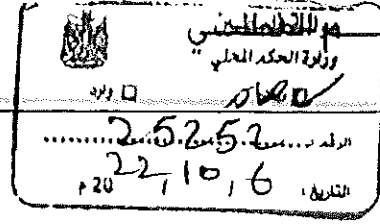 وزارة الحكم المحلي
صادر □ وارد
الرقم : 25252
التاريخ : 6 , 10 , 2022 م